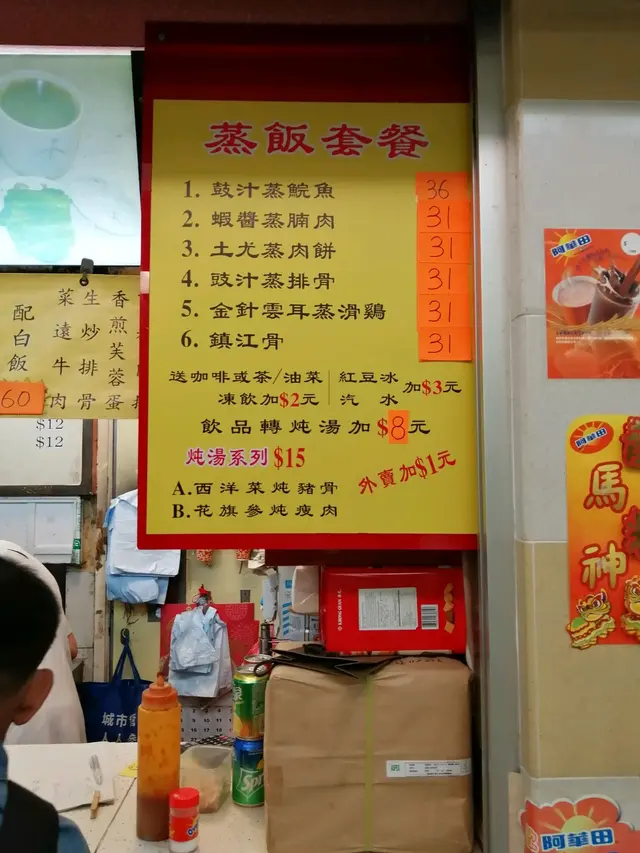 蒸飯套餐
1. 鼓汁蒸鯇魚 36
2. 蝦醬蒸腩肉 31
3. 土尤蒸肉餅 31
4. 豉汁蒸排骨 31
5. 金針雲耳蒸滑鷄 31
6. 鎮江骨 31
送咖啡或茶/油菜
凍飲加$2元
紅豆冰
汽水
加$3元
飲品轉炖湯加$8元
炖湯系列 $15
外賣加$1元
A.西洋菜炖豬骨
B.花旗參炖瘦肉
香煎芙蓉蛋
生炒排骨
菜遠牛肉
配白飯
60
$12
$12
阿華田
阿華田
馬神
阿華田
城市
Sprite